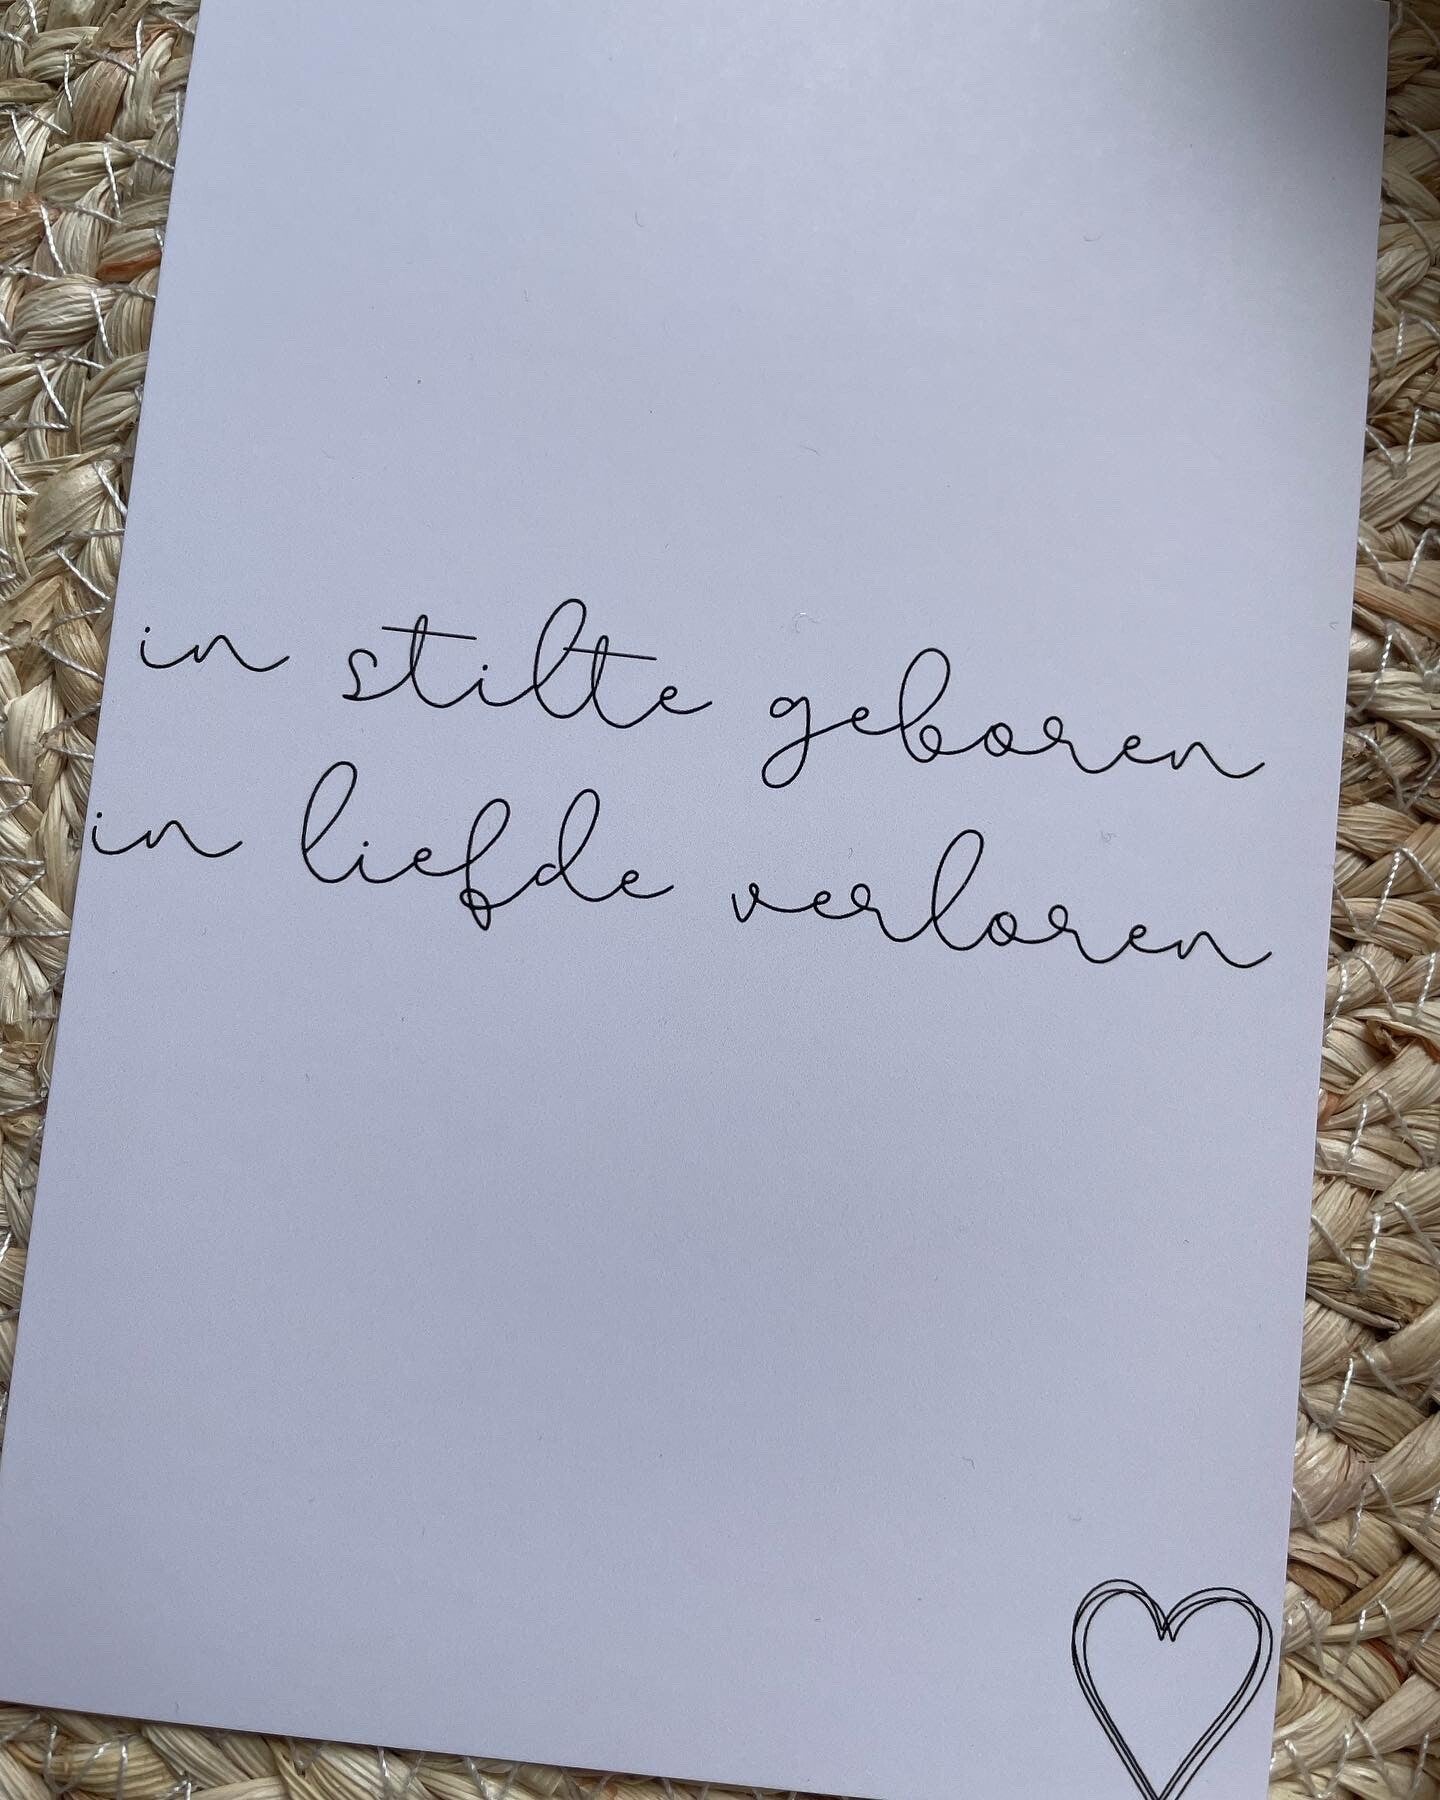 in stilte geboren
in liefde verloren